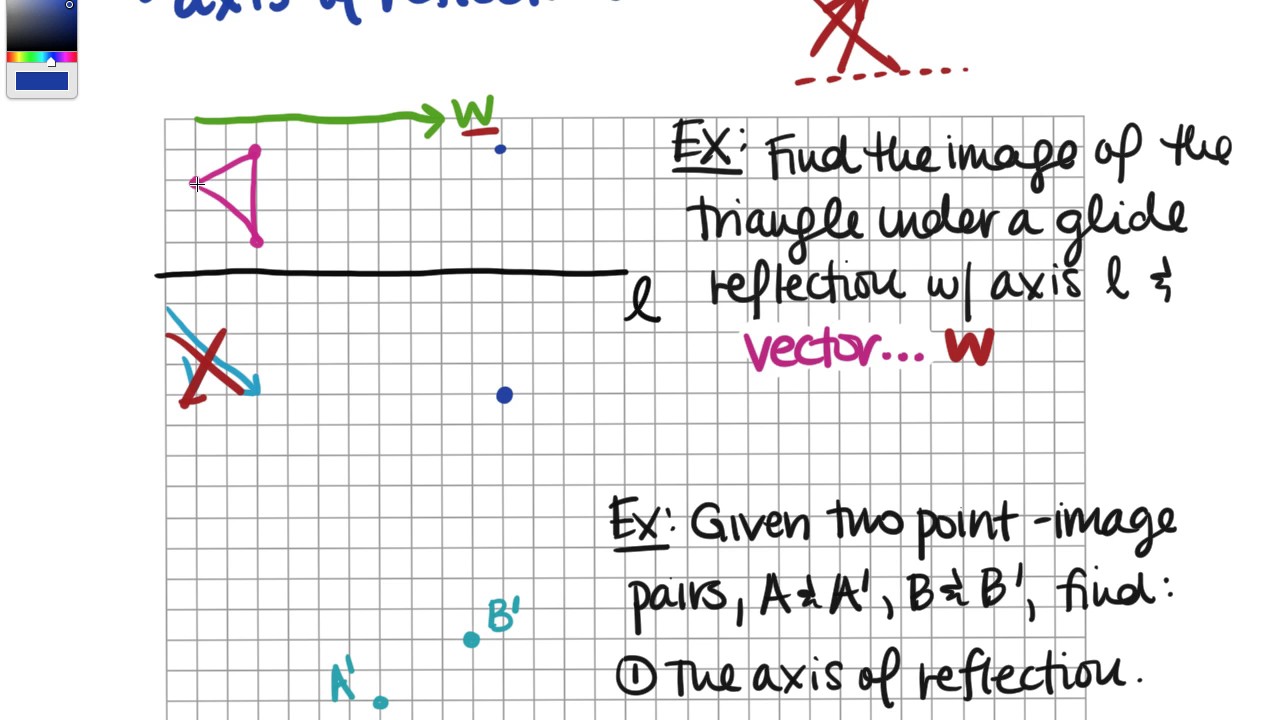 axis of reflection
W
EX: Find the image of the
triangle under a glide
reflection w/ axis l &
vector... W
l
EX: Given two point-image
pairs, A & A', B & B', find:
① The axis of reflection.
B'
A'